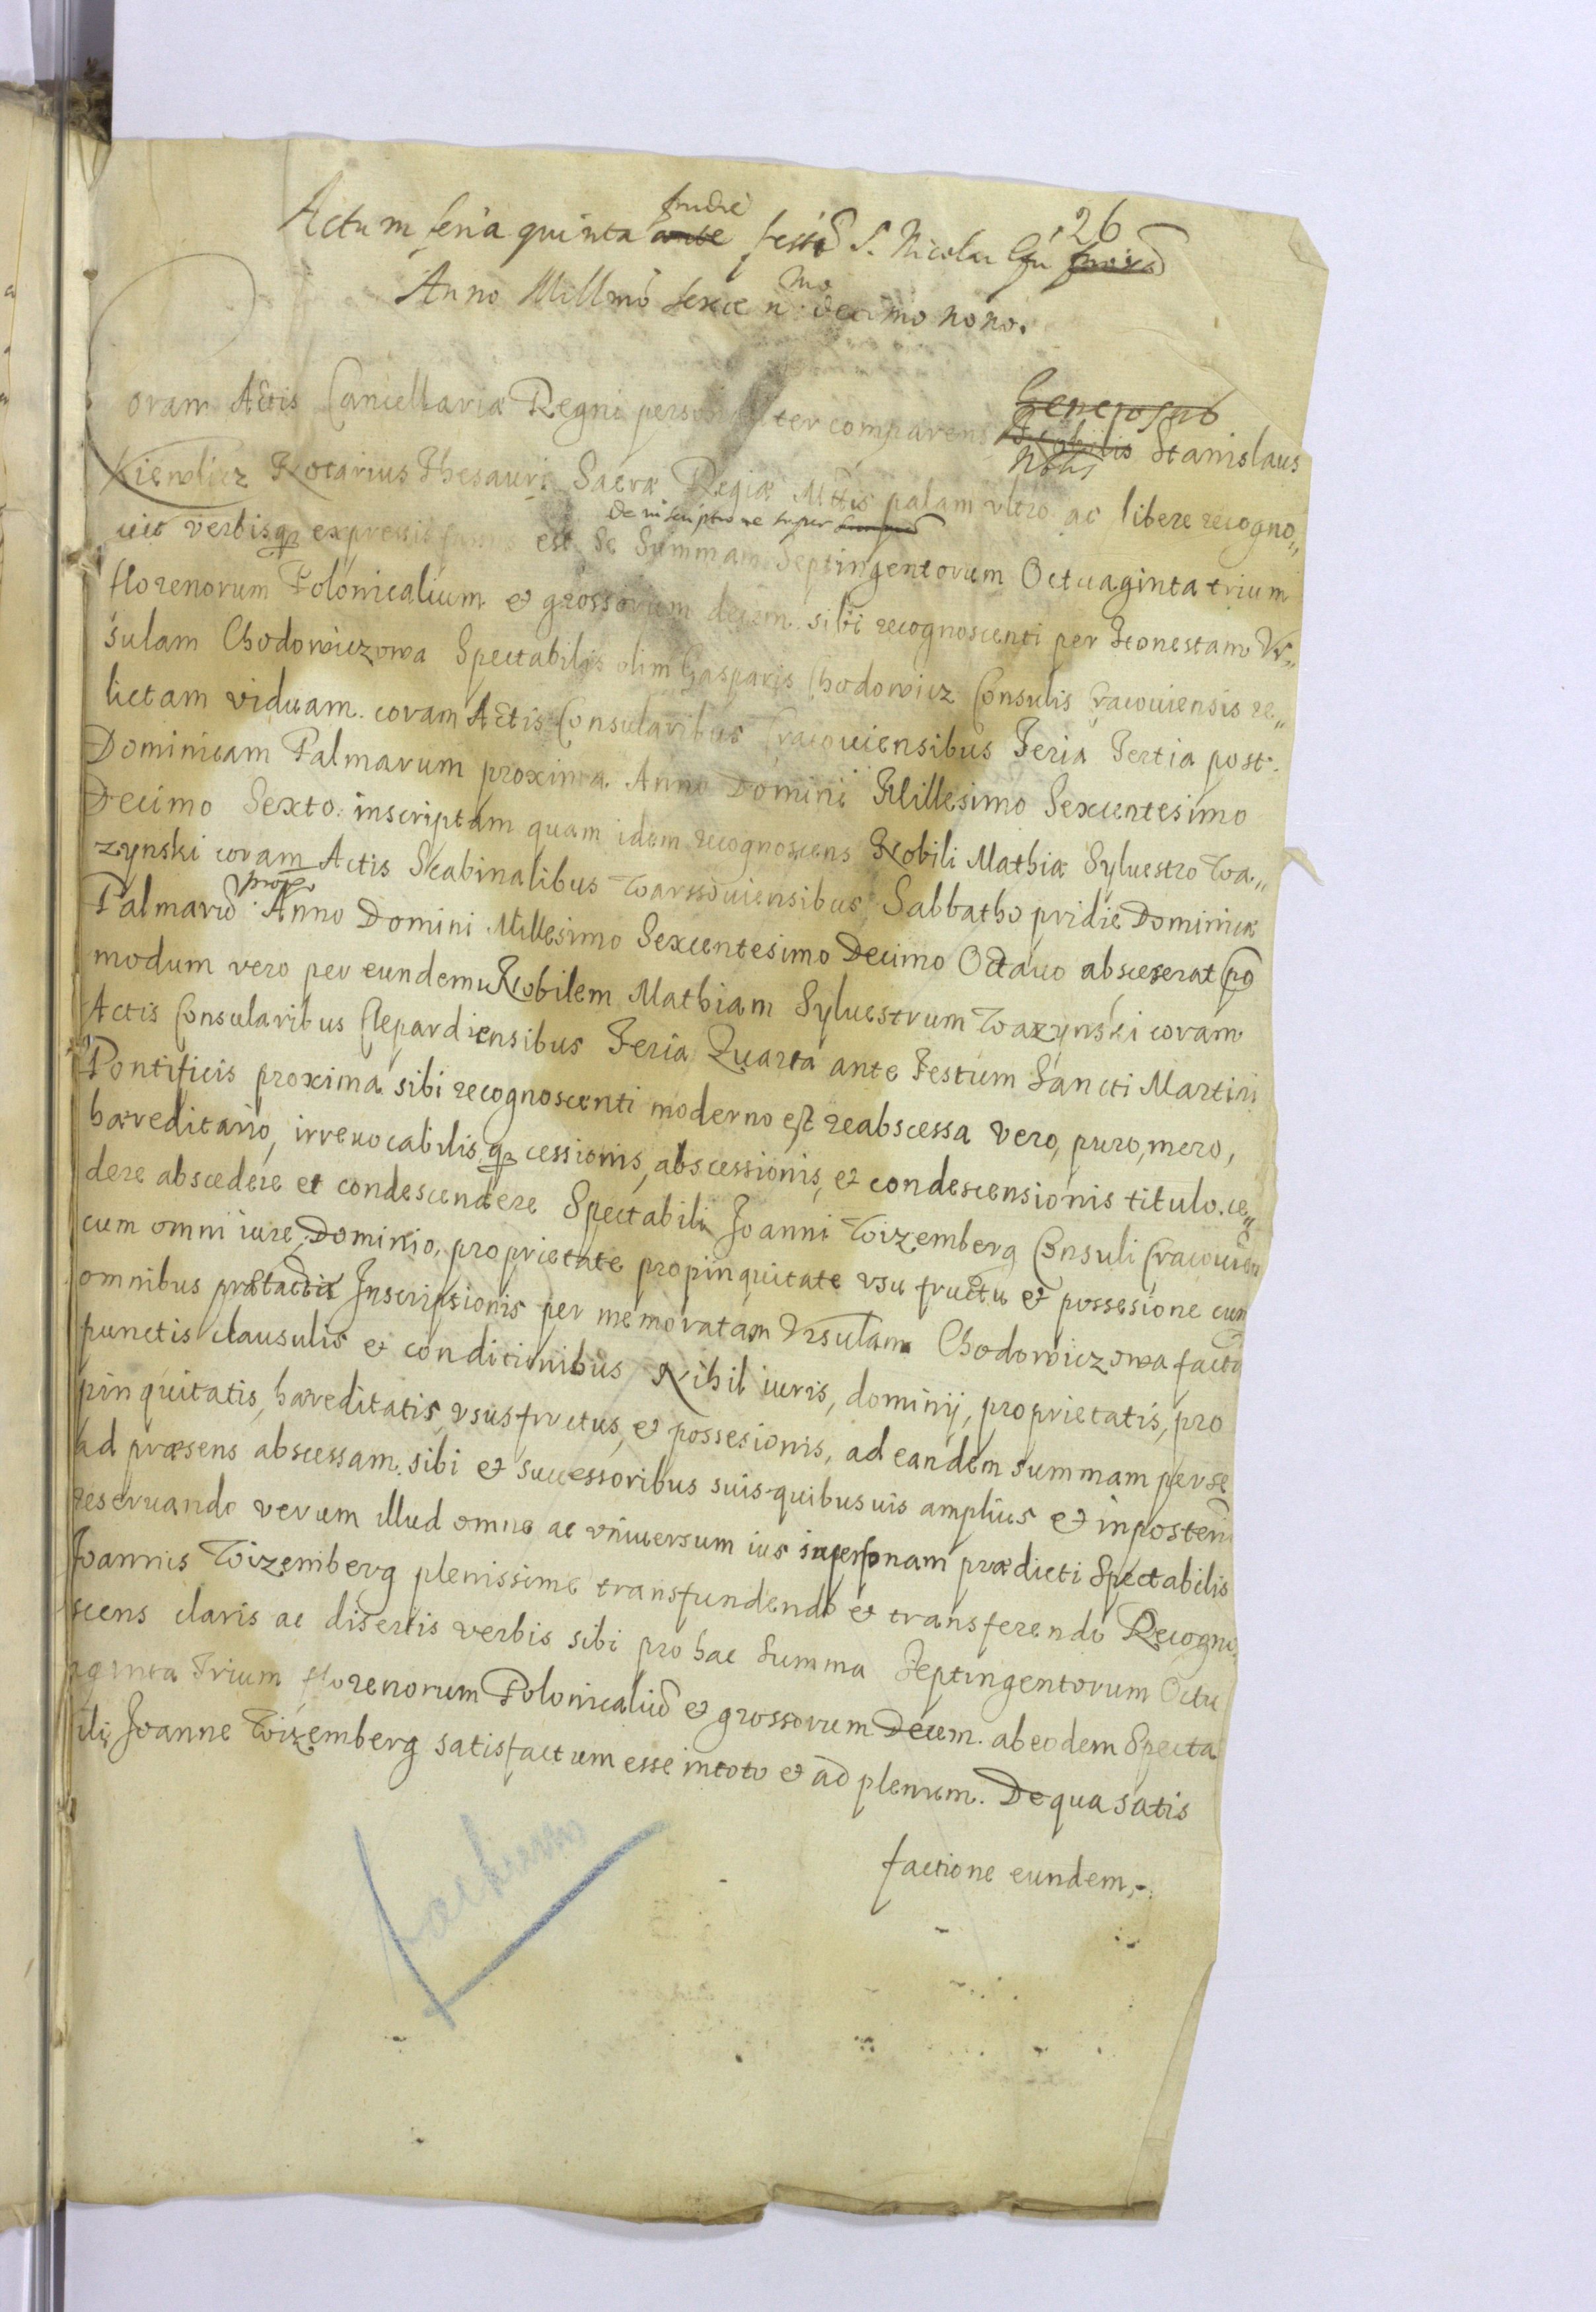 26
Actum feria quinta ante pridie festū S. Nicolai Epi
Anno Millmo sexcen mo decimo nono.
Coram Actis Cancellariæ Regni personaliter comparens Generosus Nobilis Nobilis Stanislaus
Kiewlicz Notarius Thesauri Sacræ Regiæ Mttis palam vltro ac libere recogno„
uit verbisq expressis fassus est Se de inscriptione super Summam Septingentorum Octuaginta trium
florenorum Polonicalium et grossorum decem sibi recognoscenti per Honestam Vr„
sulam Chodowiczowa Spectabilis olim Gasparis Chodowicz Consulis Cracouiensis re„
lictam viduam coram Actis Consularibus Cracouiensibus Feria Tertia post
Dominicam Palmarum proxima Anno Domini Millesimo Sexcentesimo
Decimo Sexto inscriptam quam idem recognoscens Nobili Mathiæ Syluestro Wa„
zynski coram Actis Scabinalibus Warssouiensibus Sabbatho pridie Dominicæ
Palmarū Anno Domini Millesimo Sexcentesimo Decimo Octauo abscesserat po
modum vero per eundem Nobilem Mathiam Syluestrum Wazynski coram
Actis Consularibus Clepardiensibus Feria Quarta ante Festum Sancti Martini
Pontificis proxima sibi recognoscenti moderno est reabscessa vero, puro, mero,
hæreditario, irreuocabilis q cessionis, abscessionis, et condescensionis titulo ce„
dere abscedere et condescendere Spectabili Joanni Wizemberg Consuli Cracouien
cum omni iure, Dominio, proprietate propinquitate vsu fructu et possesione cum
omnibus prætactæ Inscriptionis per memoratam Vrsulam Chodowiczowa factæ
punctis clausulis et conditionibus Nihil iuris, dominij, proprietatis, pro
pinquitatis, hæreditatis, vsusfructus, et possesionis, ad eandem summam per se
ad præsens abscessam sibi et successoribus suis quibusuis amplius et inposterū
reseruando verum illud omne ac vniuersum ius in personam prædicti Spectabilis
Joannis Wizemberg plenissime transfundendo et transferendo Recogno
scens claris ac disertis verbis sibi pro hac Summa Septingentorum Octu
aginta Trium florenorum Polonicaliū et grossorum Decem ab eodem Specta
ili Joanne Wizemberg satisfactum esse in toto et ad plenum. De qua satis
factione eundem